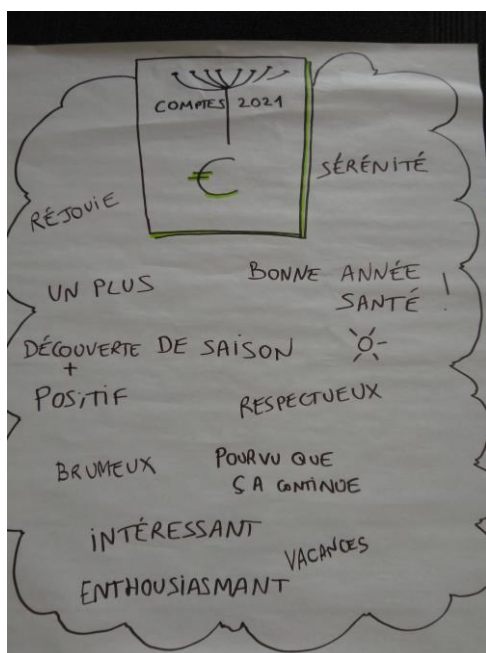 COMPTES 2021
€
SÉRÉNITÉ
RÉJOUIE
BONNE ANNÉE
SANTÉ !
UN PLUS
DÉCOUVERTE DE SAISON
+
POSITIF
RESPECTUEUX
BRUMEUX
POURVU QUE
ÇA CONTINUE
INTÉRESSANT
VACANCES
ENTHOUSIASMANT